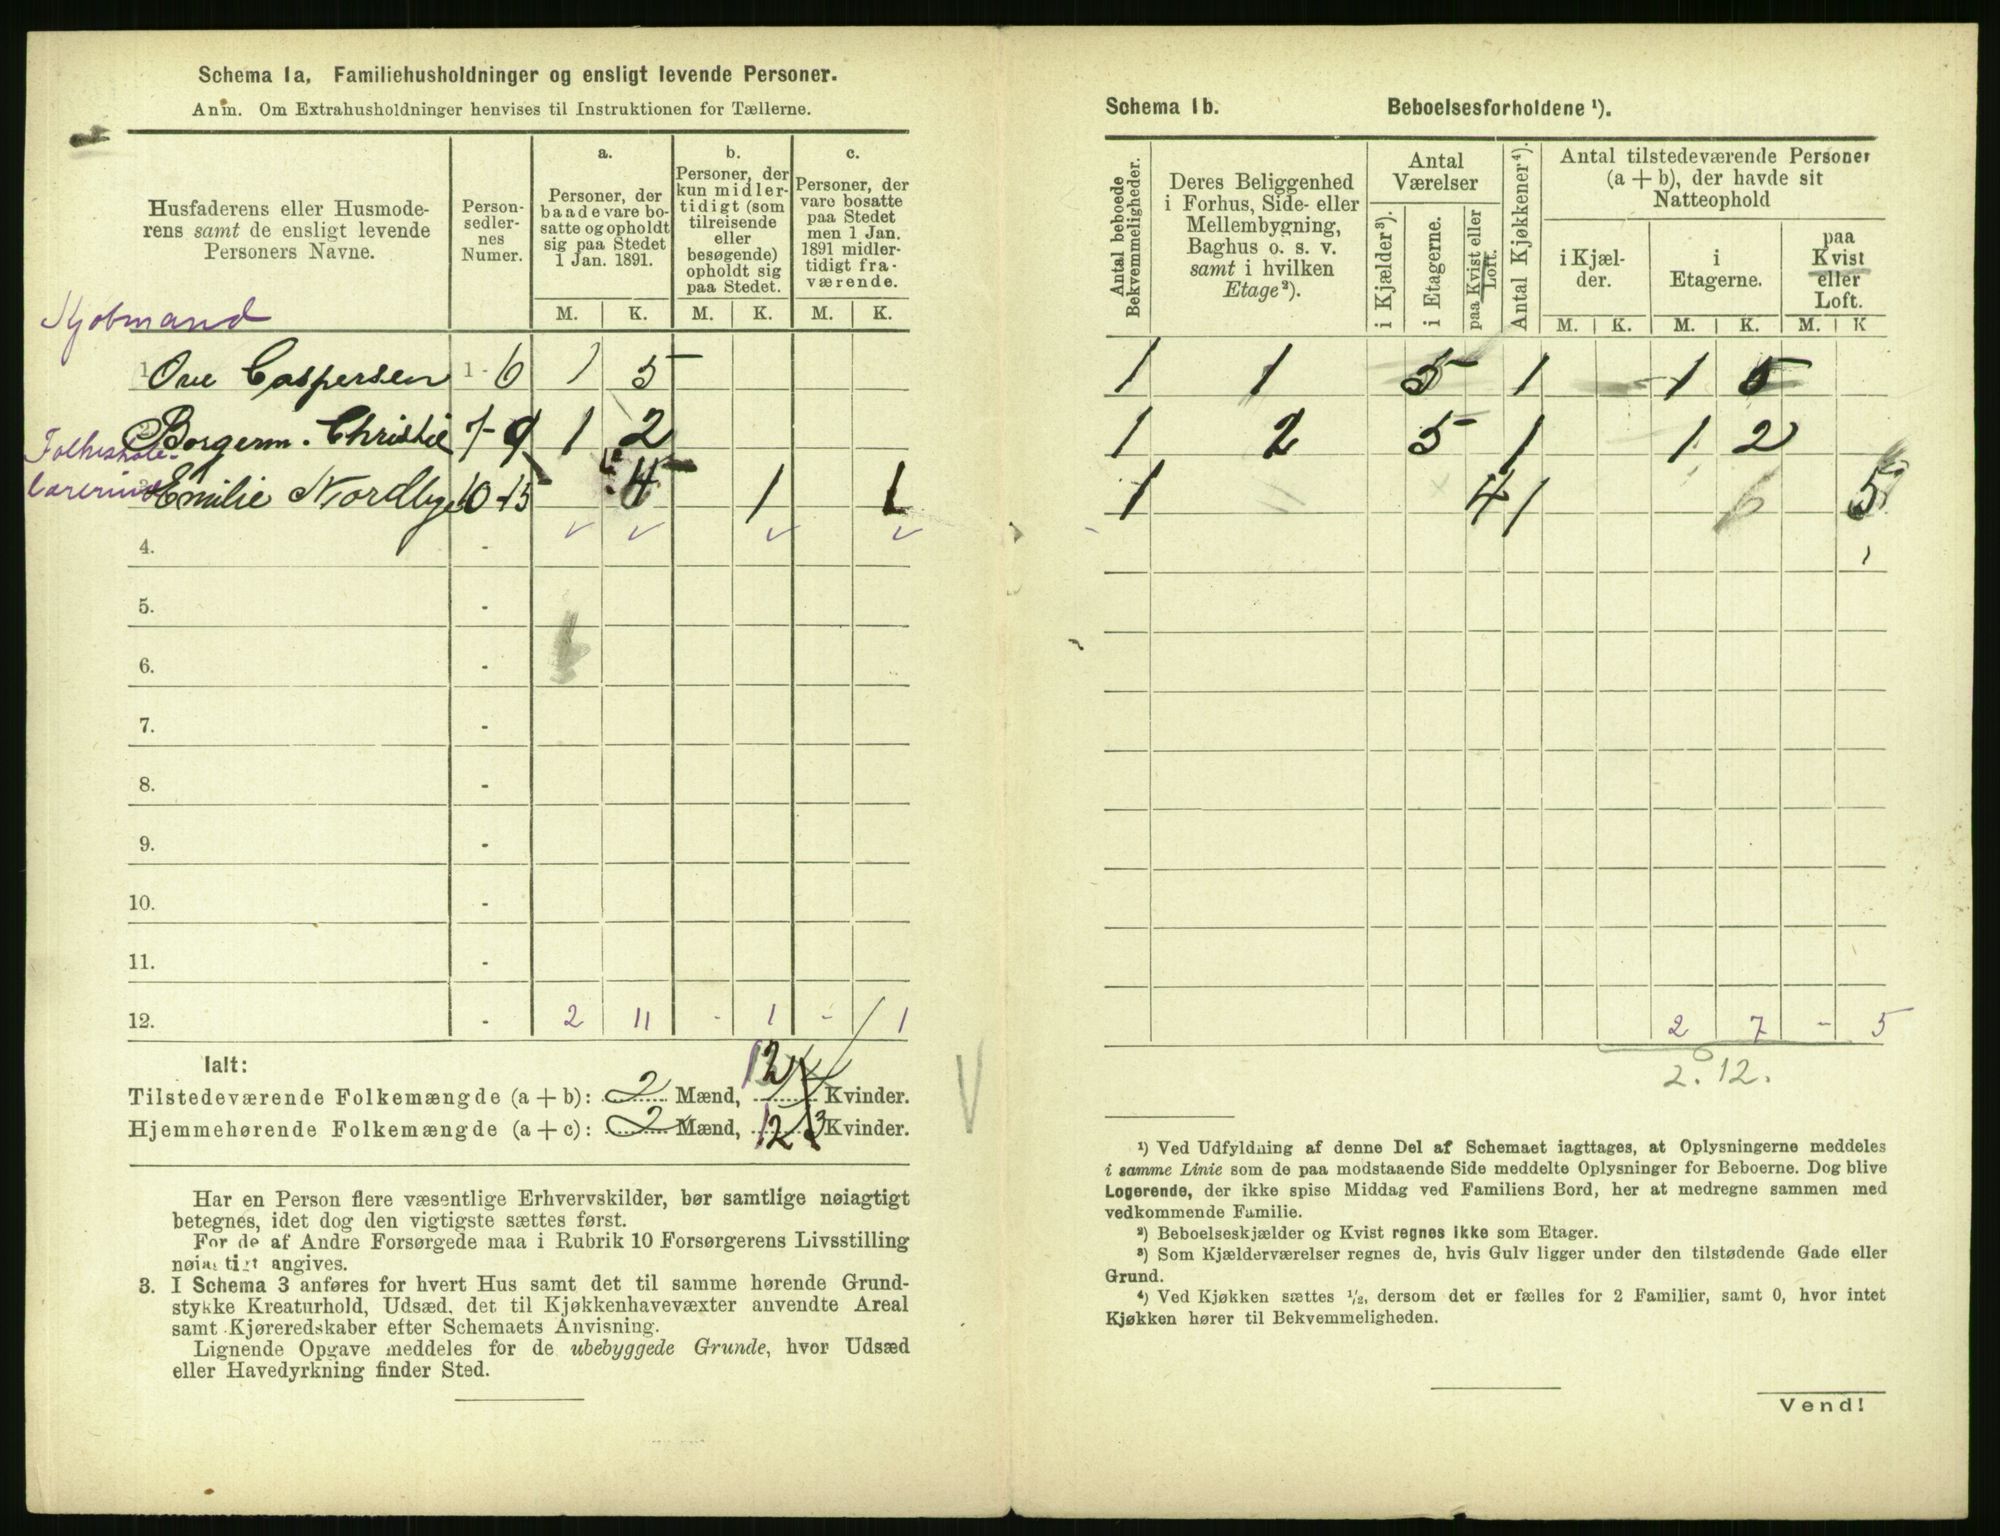 Schema 1a. Familiehusholdninger og ensligt levende Personer.
Anm. Om Extrahusholdninger henvises til Instruktionen for Tællerne.
Husfaderens eller Husmode-
rens samt de ensligt levende
Personers Navne.
Person-
sedler-
nes
Numer.
a.
Personer, der
baade vare bo-
satte og opholdt
sig paa Stedet
1 Jan. 1891.
b.
Personer, der
kun midler-
tidigt (som
tilreisende
eller
besøgende)
opholdt sig
paa Stedet.
c.
Personer, der
vare bosatte
paa Stedet
men 1 Jan.
1891 midler-
tidigt fra-
værende.
M. K. M. K. M. K.
Kjøbmand
1. Ove Caspersen 1 - 6 1 5
Borgerm. Christie 7 - 9 1 2
Folkeskole-
lærerinde Emilie Nordbye 10 - 15 4 1 1
4. -
5. -
6. -
7. -
8. -
9. -
10. -
11. -
12. - 2 11 - 1 - 1
Ialt:
Tilstedeværende Folkemængde (a + b): 2 Mænd, 12 Kvinder.
Hjemmehørende Folkemængde (a + c): 2 Mænd, 12 Kvinder.
Har en Person flere væsentlige Erhvervskilder, bør samtlige nøiagtigt
betegnes, idet dog den vigtigste sættes først.
For de af Andre Forsørgede maa i Rubrik 10 Forsørgerens Livsstilling
nøiagtigt angives.
3. I Schema 3 anføres for hvert Hus samt det til samme hørende Grund-
stykke Kreaturhold, Udsæd, det til Kjøkkenhavevæxter anvendte Areal
samt Kjøreredskaber efter Schemaets Anvisning.
Lignende Opgave meddeles for de ubebyggede Grunde, hvor Udsæd
eller Havedyrkning finder Sted.
Schema 1b. Beboelsesforholdene ¹).
Antal beboede
Bekvemmeligheder.
Deres Beliggenhed
i Forhus, Side- eller
Mellembygning,
Baghus o. s. v.
samt i hvilken
Etage²).
Antal
Værelser
i Kjælder³).
i Etagerne.
paa Kvist eller
Loft.
Antal Kjøkkener⁴).
Antal tilstedeværende Personer
(a + b), der havde sit
Natteophold
i Kjæl-
der.
i
Etagerne.
paa
Kvist
eller
Loft.
M. K. M. K. M. K
1 1 5 1 1 5
1 2 5 1 1 2
1 4 1 6 5
1
2 7 - 5
2. 12.
¹) Ved Udfyldning af denne Del af Schemaet iagttages, at Oplysningerne meddeles
i samme Linie som de paa modstaaende Side meddelte Oplysninger for Beboerne. Dog blive
Logerende, der ikke spise Middag ved Familiens Bord, her at medregne sammen med
vedkommende Familie.
²) Beboelseskjælder og Kvist regnes ikke som Etager.
³) Som Kjælderværelser regnes de, hvis Gulv ligger under den tilstødende Gade eller
Grund.
⁴) Ved Kjøkken sættes ½, dersom det er fælles for 2 Familier, samt 0, hvor intet
Kjøkken hører til Bekvemmeligheden.
Vend!